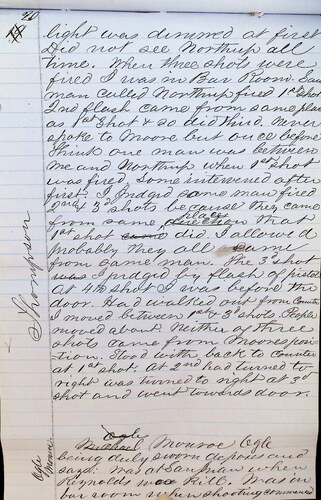 40
light was dimmed at first
Did not see Northup all
time. When three shots were
fired I was in Bar Room. Saw
man called Northup fired 1st shot
2nd flash came from same place
as 1st shot & so did third. Never
spoke to Moore but once before
think one man was between
me and Northup when 1st shot
was fired, some intervened after
first. I judged same man fired
2nd & 3d shots because they came
from same place that
1st shot did. I allowed
probably they all came
from same man. The 3d shot
was I judged by flash of pistol
at 4th shot I was before the
door. Had walked out from counter
I moved between 1st & 3d shots. People
moved about. Neither of three
shots came from Moores posi-
tion. Stood with back to counter
at 1st shot. At 2nd had turned to
right was turned to right at 3d
shot and went towards door.
Thompson
Ogle
Michael Monroe Ogle
being duly sworn deposes and
said: was at Sausman when
Reynolds was Kill. Was in
bar room when shooting commenced
Ogle
Monroe